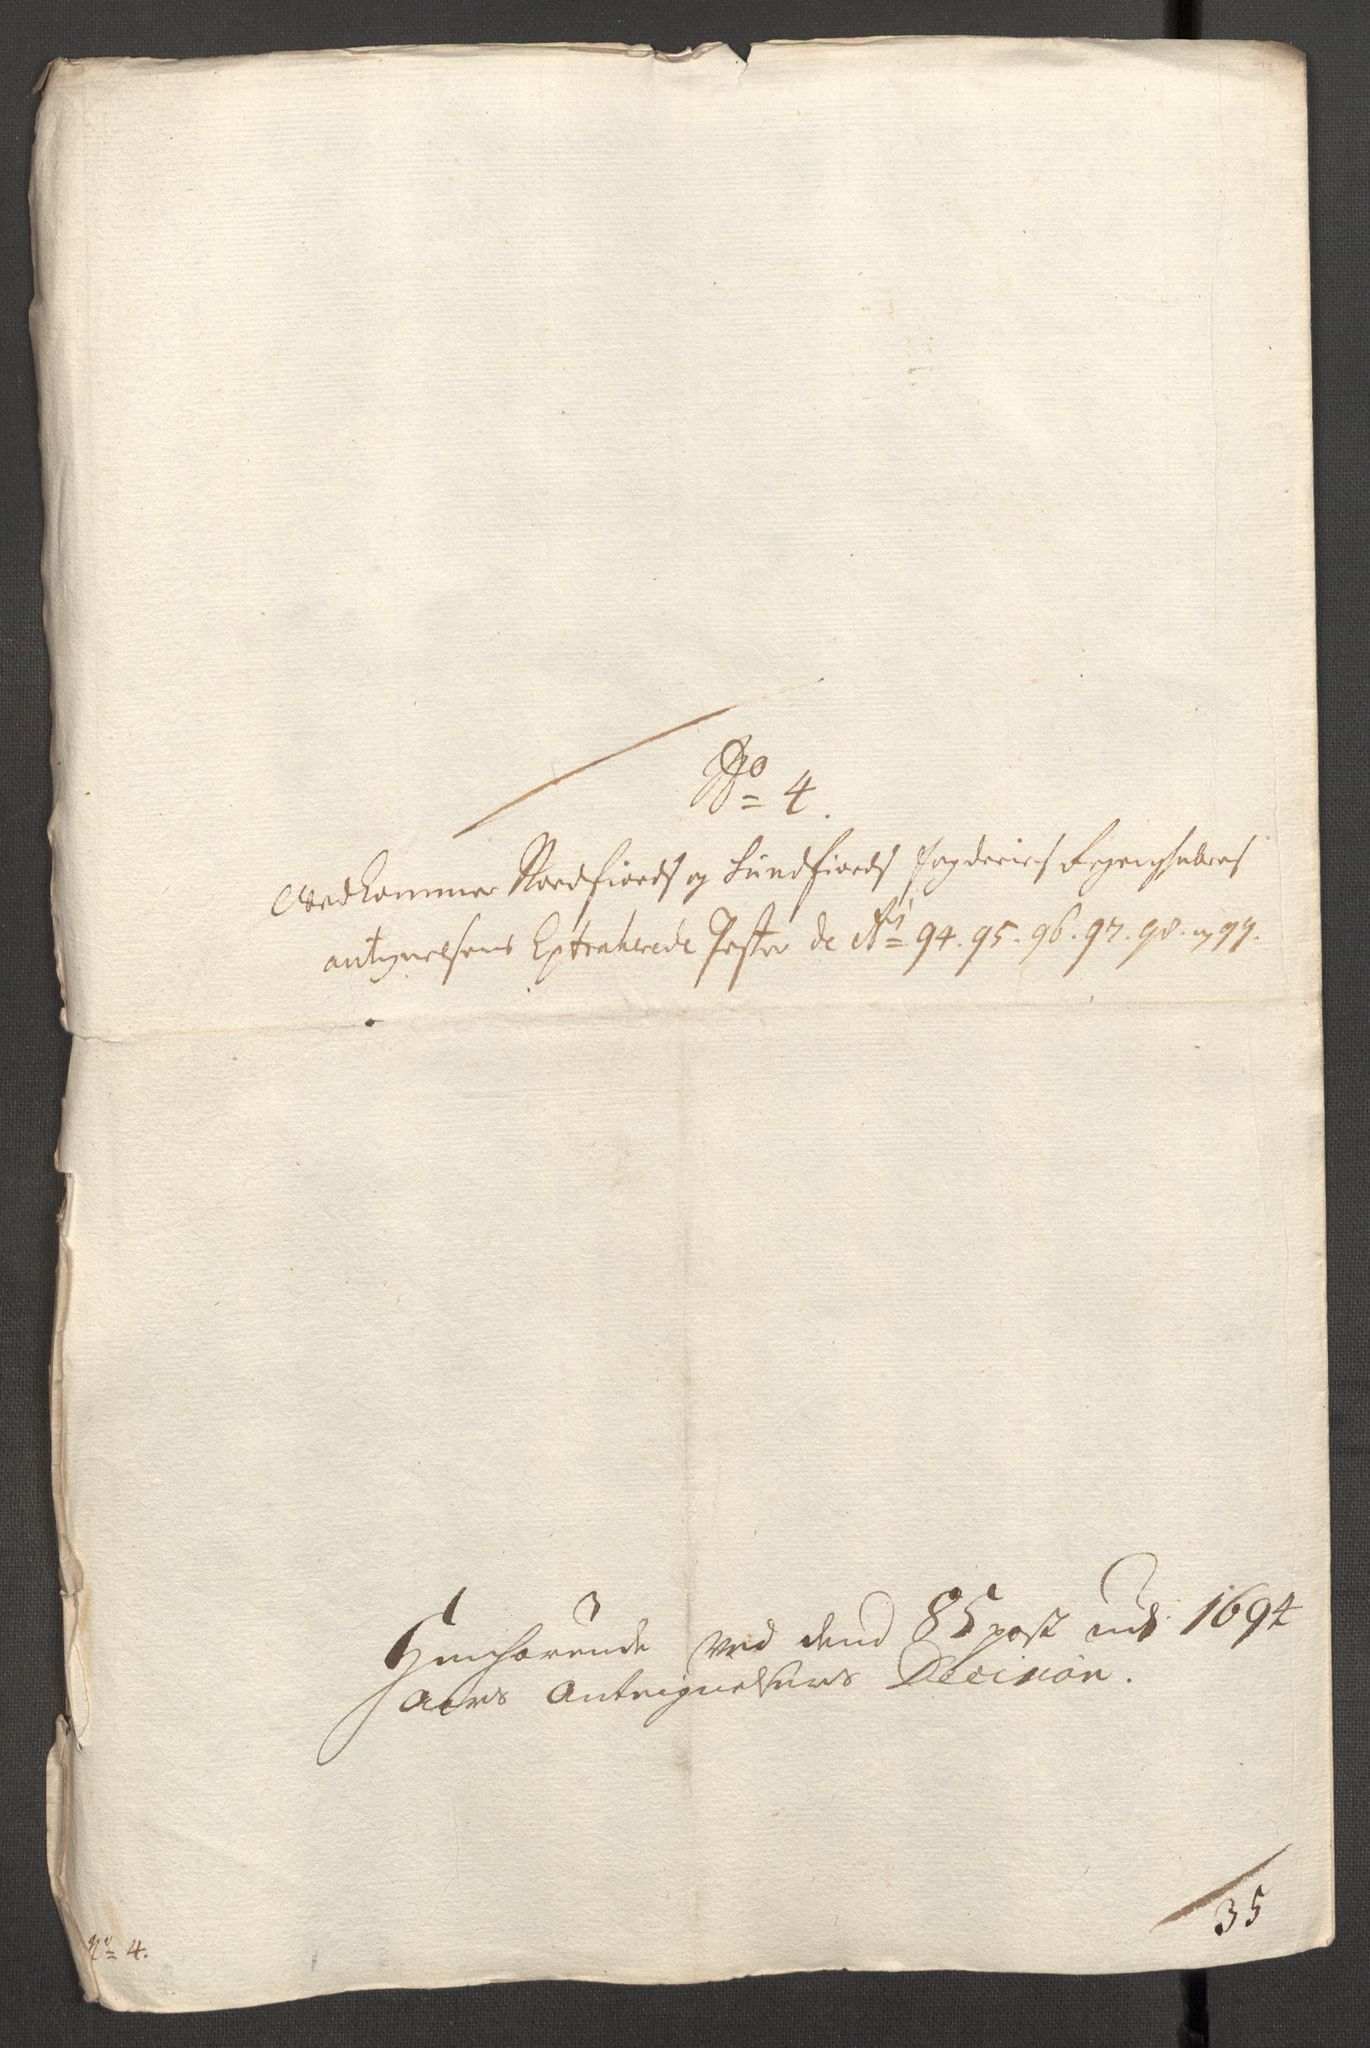 No 4.
Vedkommer Nordfiords og Sundfiords fogderies Regenskabers
antegnelsens Extraherede Poster de Ao 94. 95. 96. 97. 98. og 99.
Henhörende ved dend 85 post udj 1694
aars Anteignelsers Decision.
35
No 4.